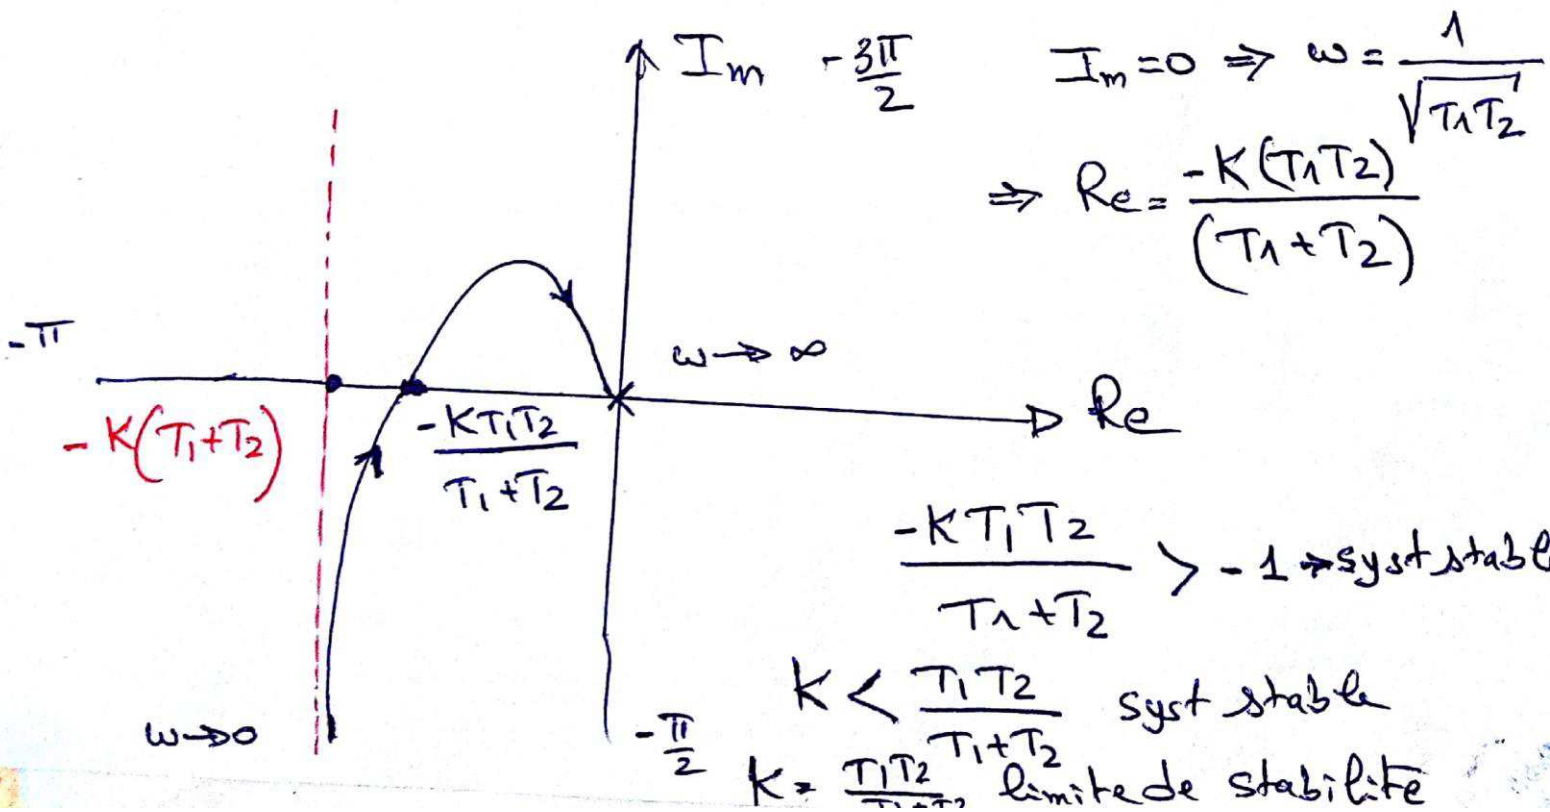 Im -3π/2
Im=0 ⇒ ω = 1/√(T1T2)
⇒ Re = -K(T1T2)/(T1+T2)
-π
ω → ∞
Re
-K(T1+T2)
-KT1T2/(T1+T2)
-KT1T2/(T1+T2) > -1 → syst stable
K < T1T2/(T1+T2) syst stable
ω→0
-π/2
K = T1T2/(T1+T2) limite de stabilité